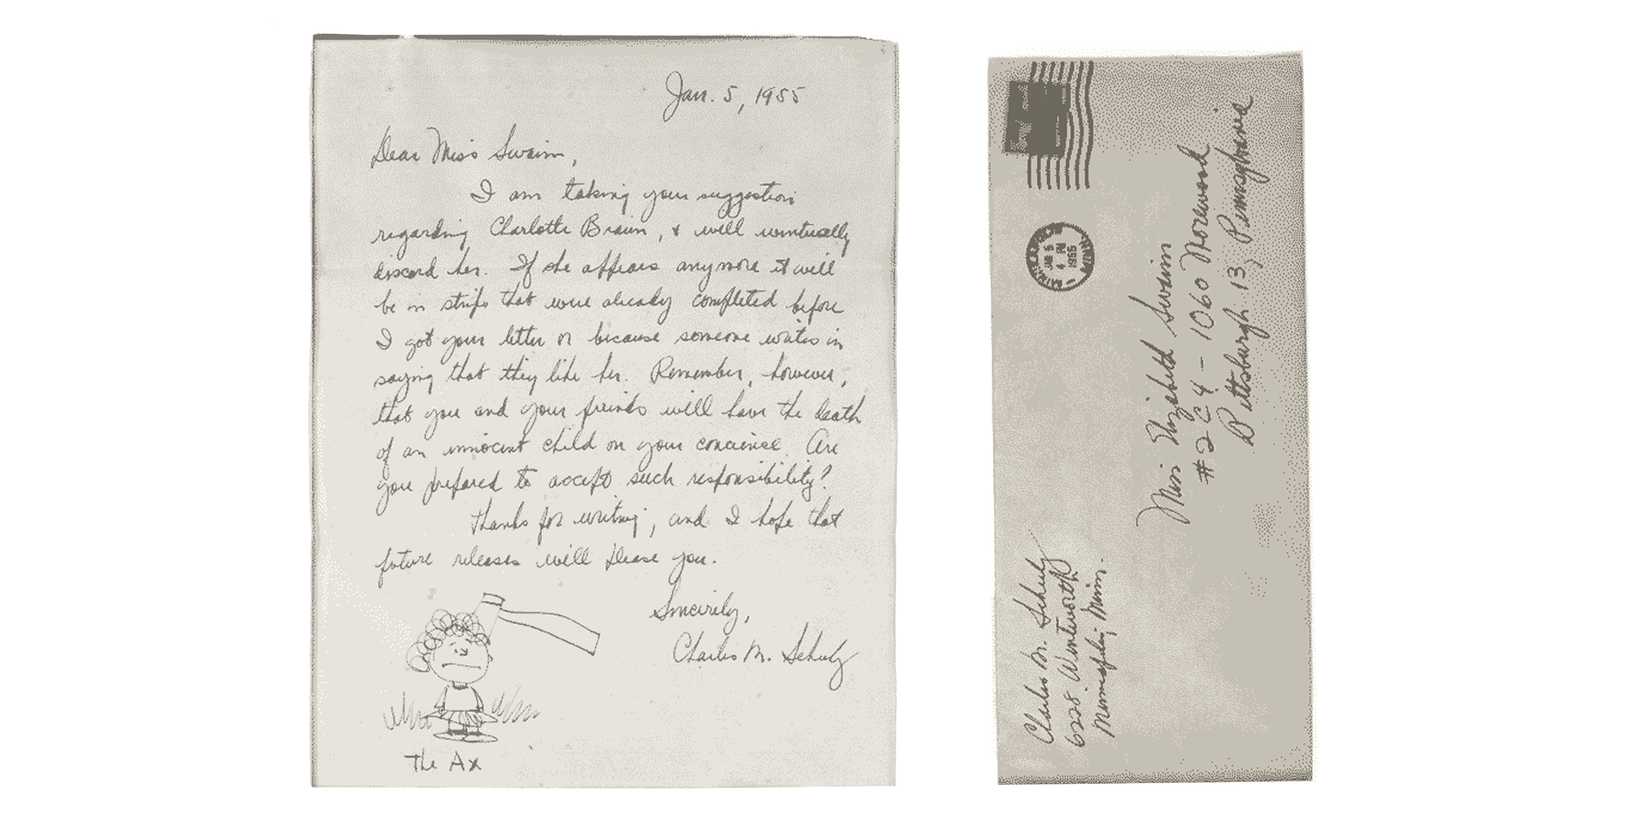 Jan. 5, 1955
Dear Miss Swaim,
I am taking your suggestion
regarding Charlotte Braun, & will eventually
discard her. If she appears anymore it will
be in strips that were already completed before
I got your letter or because someone writes in
saying that they like her. Remember, however,
that you and your friends will have the death
of an innocent child on your concience. Are
you prepared to accept such responsibility?
Thanks for writing, and I hope that
future releases will please you.
Sincerely,
Charles M. Schulz
The Ax
MINNEAPOLIS
MINN.
JAN 5
4 PM
1955
Miss Elizabeth Swaim
#2C4 - 1060 Morewood
Pittsburgh 13, Pennsylvania
Charles M. Schulz
6228 Wentworth
Minneapolis, Minn.